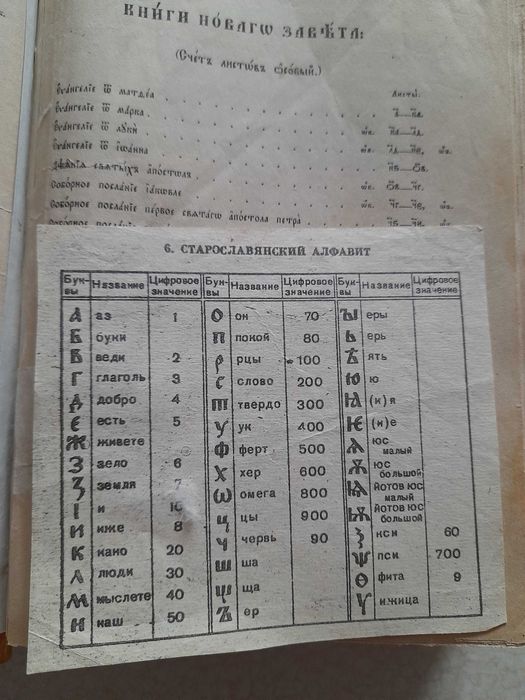 КНИГИ НОВАГѠ ЗАВѢТА:
(Счетъ листѡвъ ѻсобый.)
Листы:
Ѐѵангелїе ѿ матѳеа
Ѐѵангелїе ѿ марка
Ѐѵангелїе ѿ лꙋки
Ѐѵангелїе ѿ їѡанна
Дѣѧнїѧ свѧтыхъ апостолѡвъ
Соборное посланїе їаковле
Соборное посланїе первое свѧтагѡ апостола петра
6. СТАРОСЛАВЯНСКИЙ АЛФАВИТ
Бук-вы Название Цифровое значение Бук-вы Название Цифровое значение Бук-вы Название Цифровое значение
А аз 1 О он 70 Ꙑ еры
Б буки П покой 80 Ь ерь
В веди 2 Р рцы 100 Ѣ ять
Г глаголь 3 С слово 200 Ю ю
Д добро 4 Т твердо 300 Ꙗ (и)я
Є есть 5 У ук 400 Ѥ (и)е
Ж живете Ф ферт 500 Ѧ юс малый
Ѕ зело 6 Х хер 600 Ѫ юс большой
З земля 7 Ѡ омега 800 Ѩ йотов юс малый
І и 10 Ц цы 900 Ѭ йотов юс большой
И иже 8 Ч червь 90 Ѯ кси 60
К како 20 Ш ша Ѱ пси 700
Л люди 30 Щ ща Ѳ фита 9
М мыслете 40 Ъ ер Ѵ ижица
Н наш 50